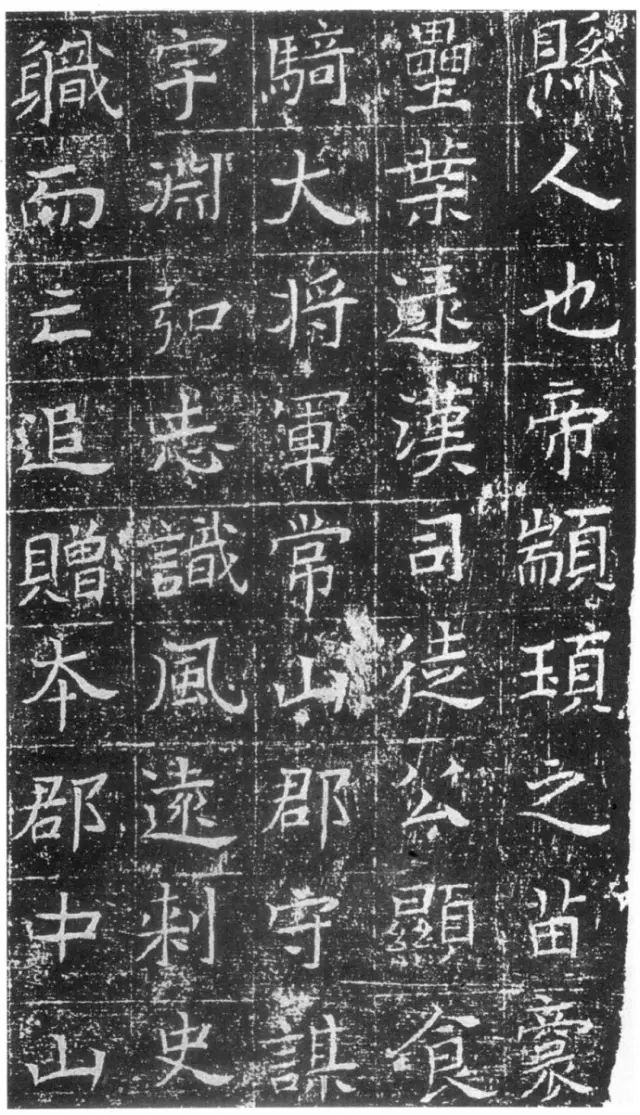 縣人也帝顓頊之苗裔
壘葉逺漢司徒公顯食
騎大将軍常山郡守謀
字淵弘志識風遠刺史
軄而亡追贈本郡中山